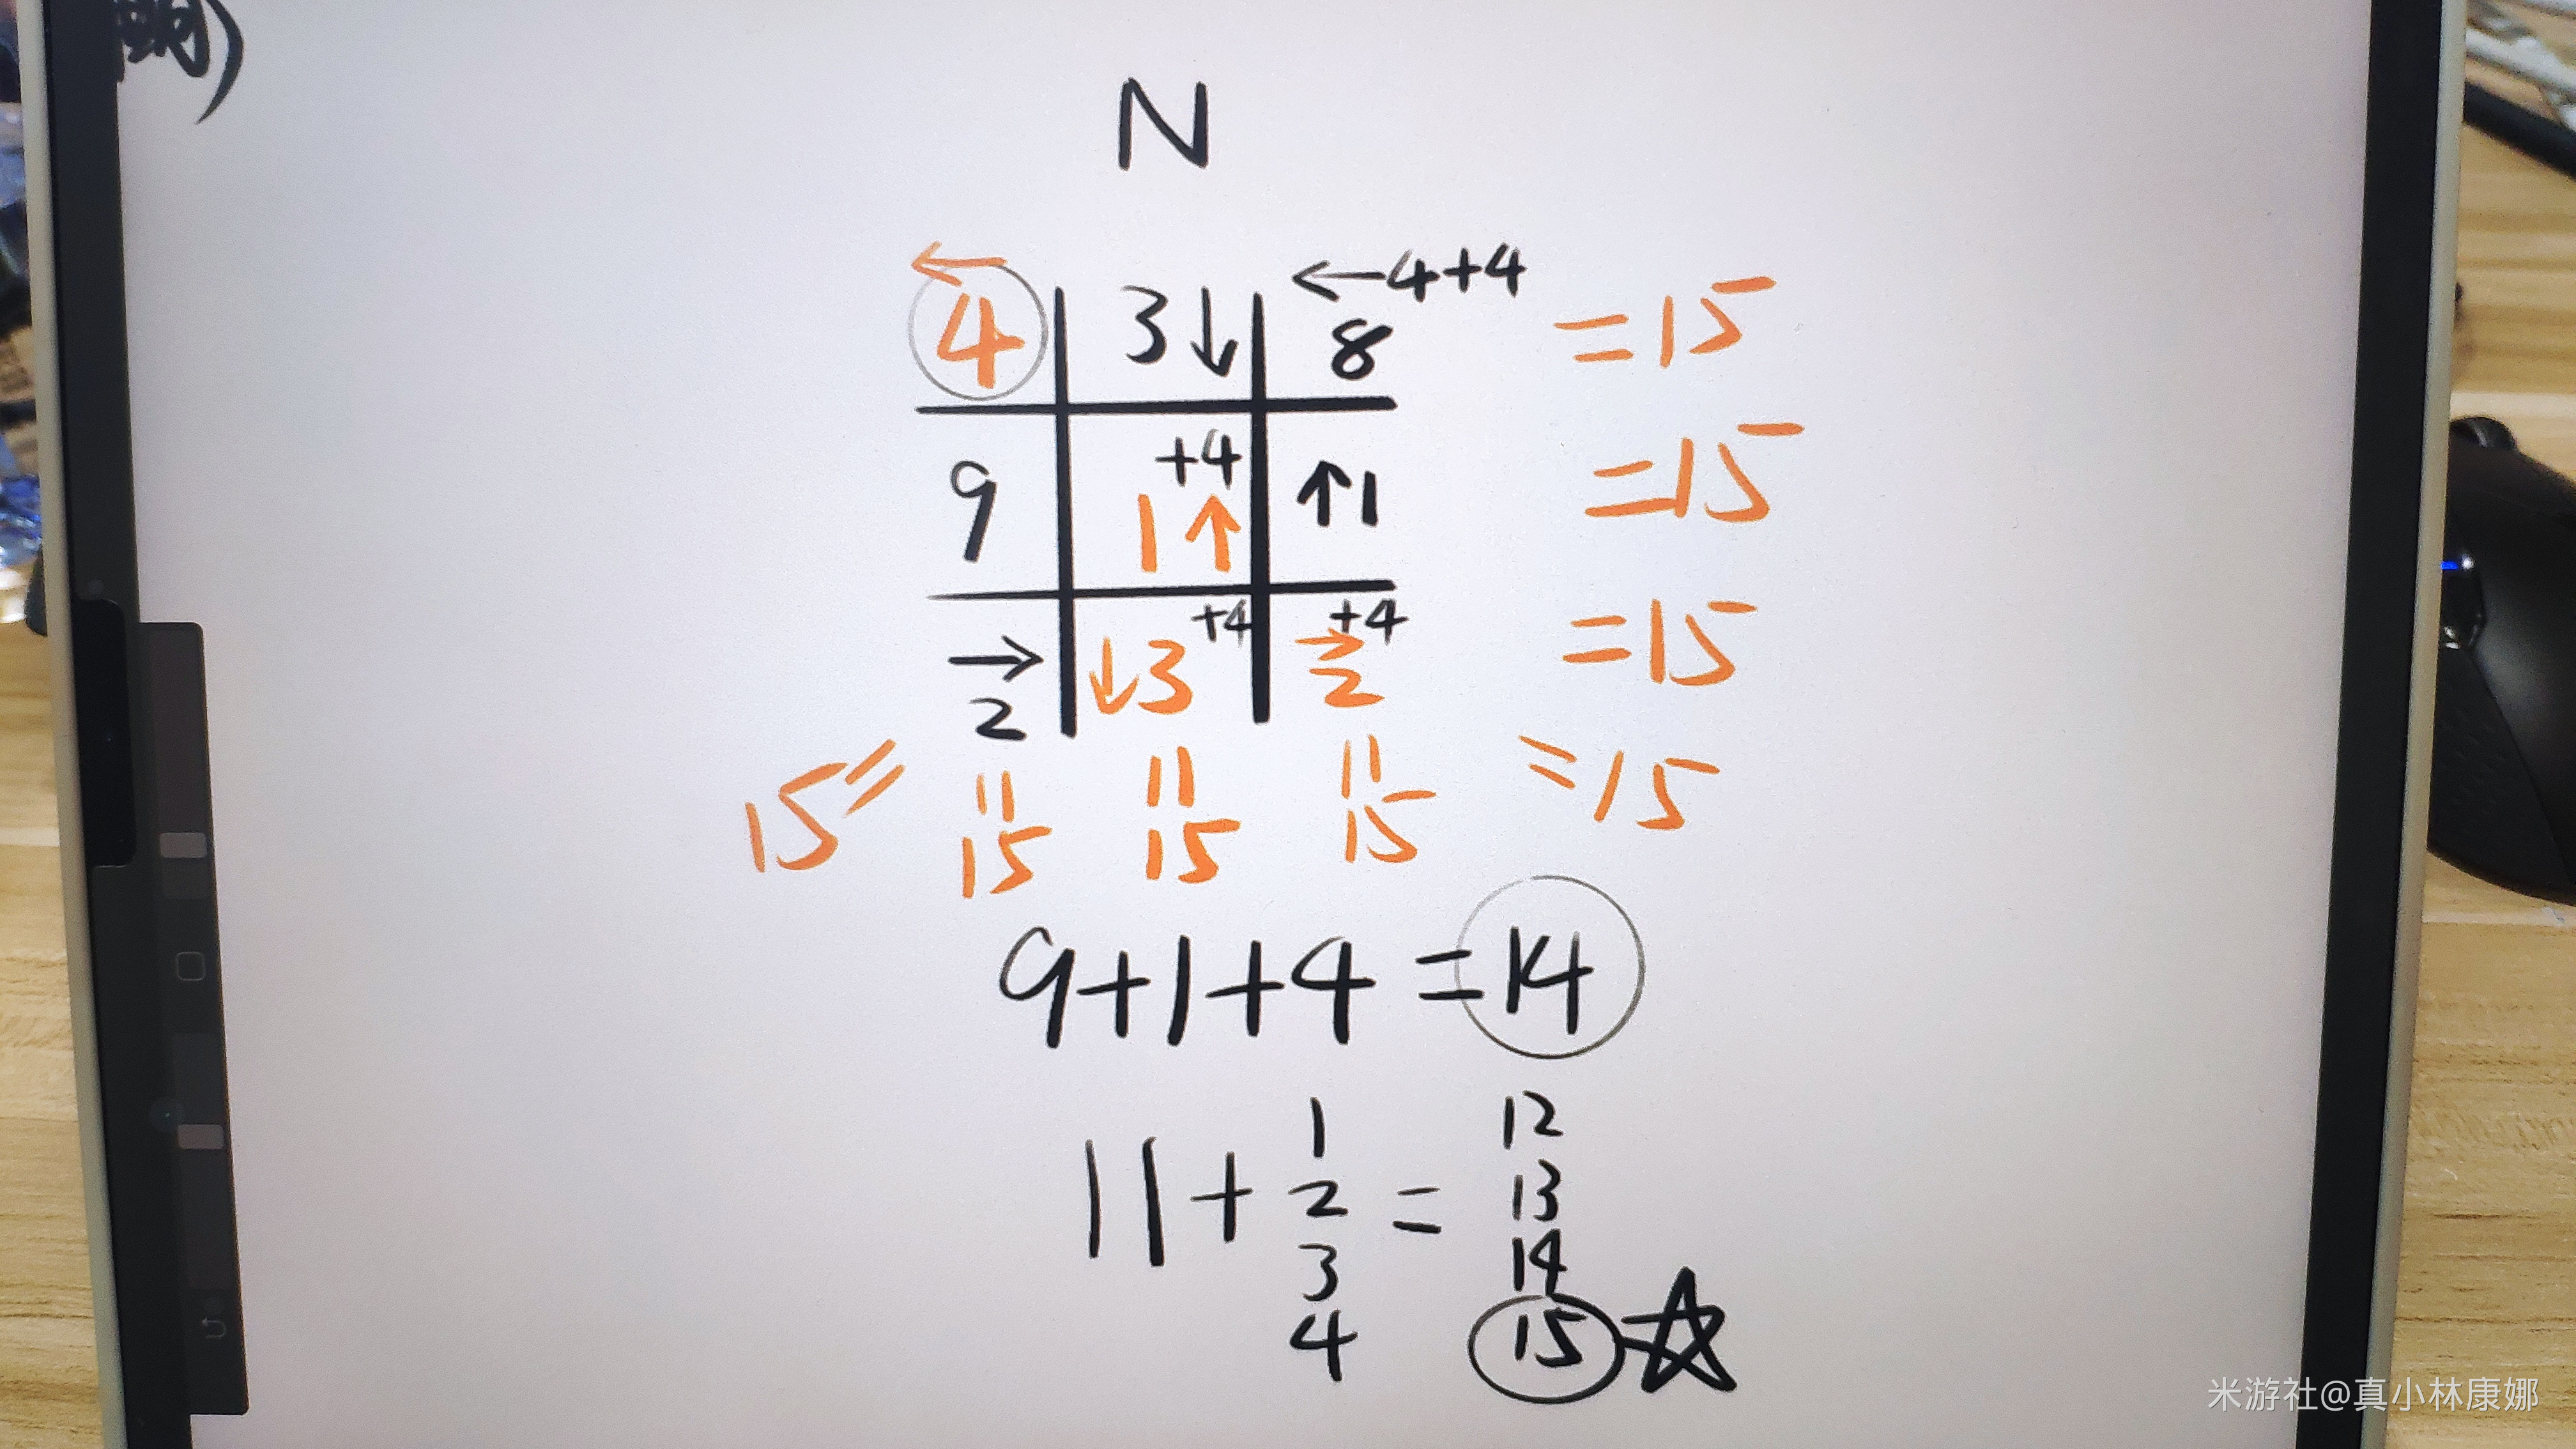 N
4 3↓ ←4+4 8 =15
9 +4 1↑ ↑1 =15
→2 ↓3 +4 →2 +4 =15
15= =15
15 15 15
9+1+4=14
11+ 1 = 12
2 13
3 14
4 15
米游社@真小林康娜